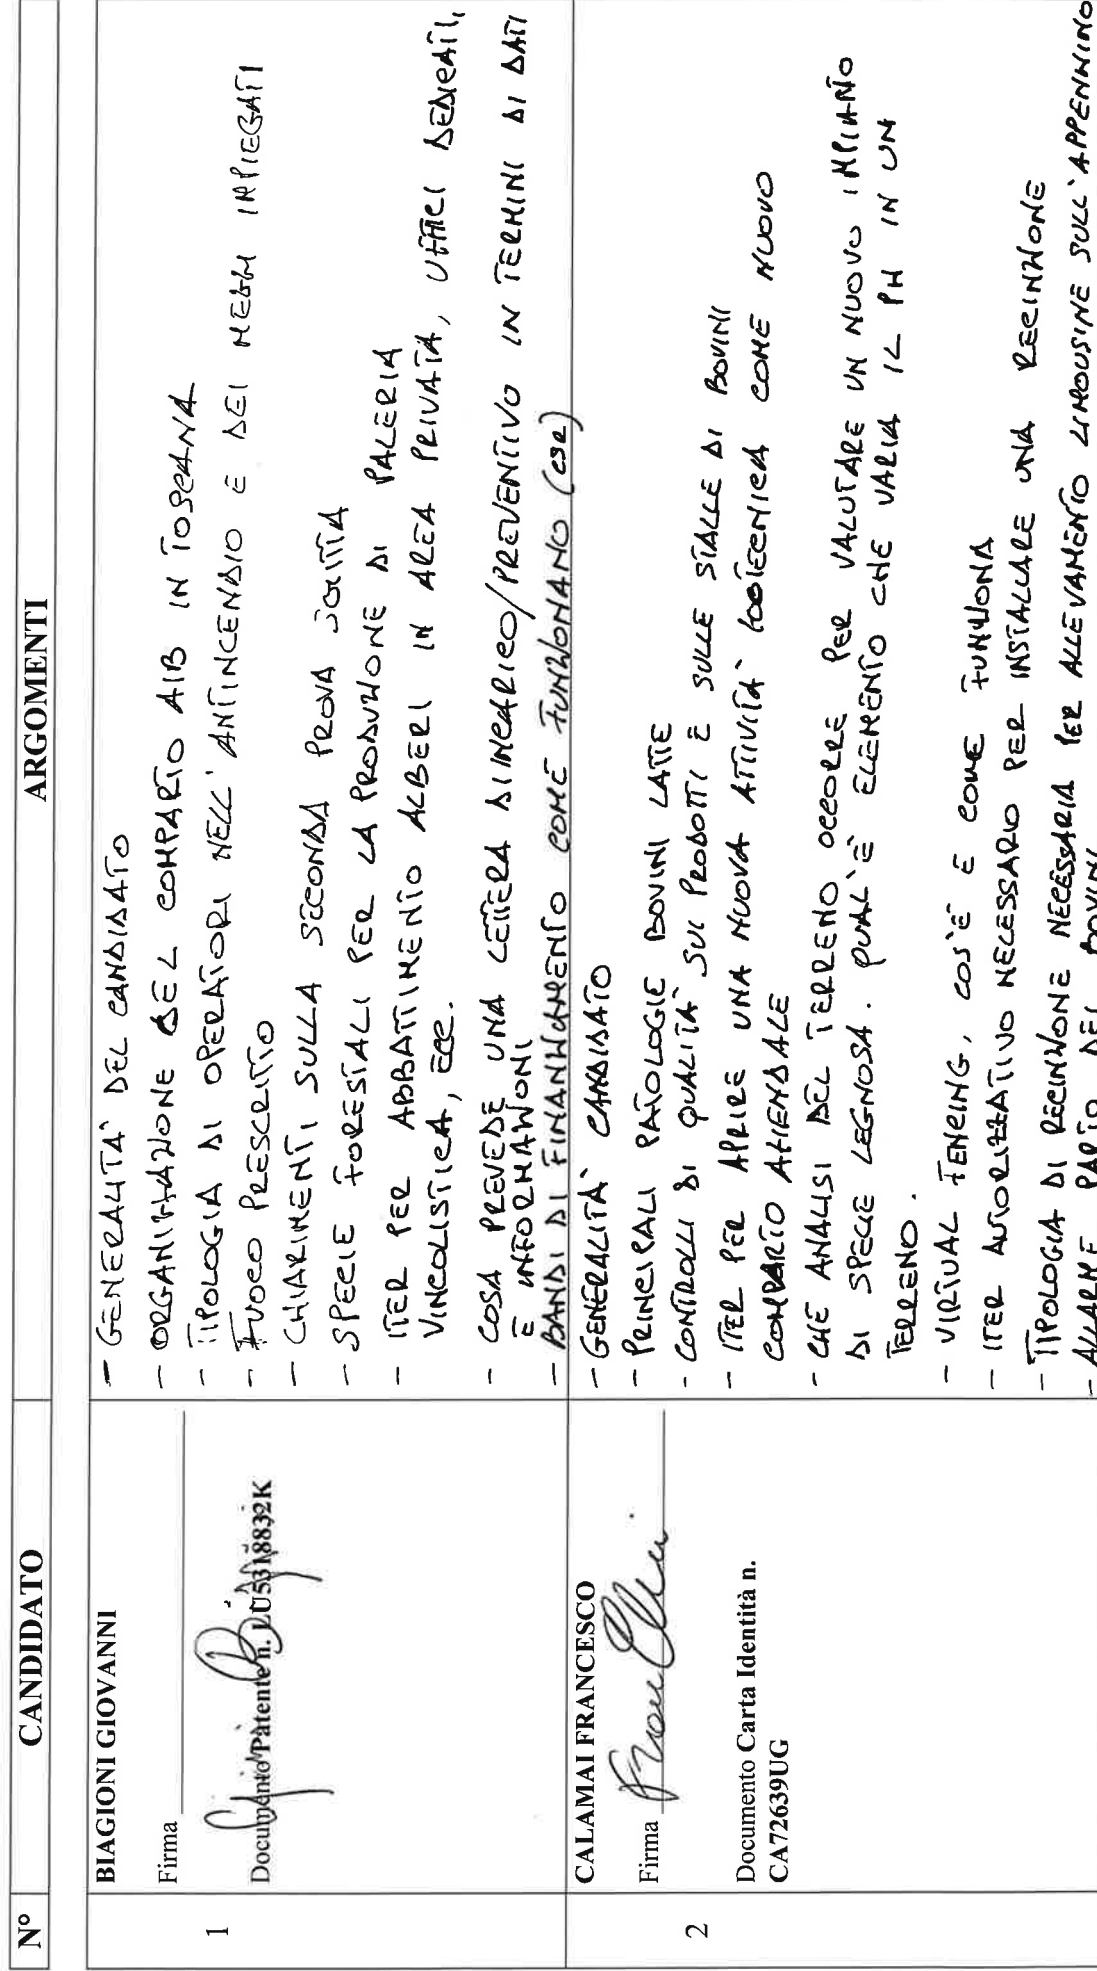 N° CANDIDATO ARGOMENTI
1
BIAGIONI GIOVANNI
Firma
Documento Patente n. LU5318832K
- GENERALITA' DEL CANDIDATO
- ORGANIZZAZIONE DEL COMPARTO AIB IN TOSCANA
- TIPOLOGIA DI OPERATORI NELL'ANTINCENDIO E DEI MEZZI IMPIEGATI
- FUOCO PRESCRITTO
- CHIARIMENTI SULLA SECONDA PROVA SCRITTA
- SPECIE FORESTALI PER LA PRODUZIONE DI PALERIA
- ITER PER ABBATTIMENTO ALBERI IN AREA PRIVATA, UFFICI DEDICATI,
VINCOLISTICA, ECC.
- COSA PREVEDE UNA LETTERA DI INCARICO/PREVENTIVO IN TERMINI DI DATI
E INFORMAZIONI
- BANDI DI FINANZIAMENTO COME FUNZIONANO (CSR)
2
CALAMAI FRANCESCO
Firma
Documento Carta Identità n.
CA72639UG
- GENERALITA' CANDIDATO
- PRINCIPALI PATOLOGIE BOVINI LATTE
- CONTROLLI DI QUALITA' SUI PRODOTTI E SULLE STALLE DI BOVINI
- ITER PER APRIRE UNA NUOVA ATTIVITA' ZOOTECNICA COME NUOVO
COMPARTO AZIENDALE
- CHE ANALISI DEL TERRENO OCCORRE PER VALUTARE UN NUOVO IMPIANTO
DI SPECIE LEGNOSA. QUAL'È ELEMENTO CHE VARIA IL PH IN UN
TERRENO.
- VIRTUAL FENCING, COS'È E COME FUNZIONA
- ITER AUTORIZZATIVO NECESSARIO PER INSTALLARE UNA RECINZIONE
- TIPOLOGIA DI RECINZIONE NECESSARIA PER ALLEVAMENTO LIMOUSINE SULL'APPENNINO
- ALLARME PARTO DEI BOVINI